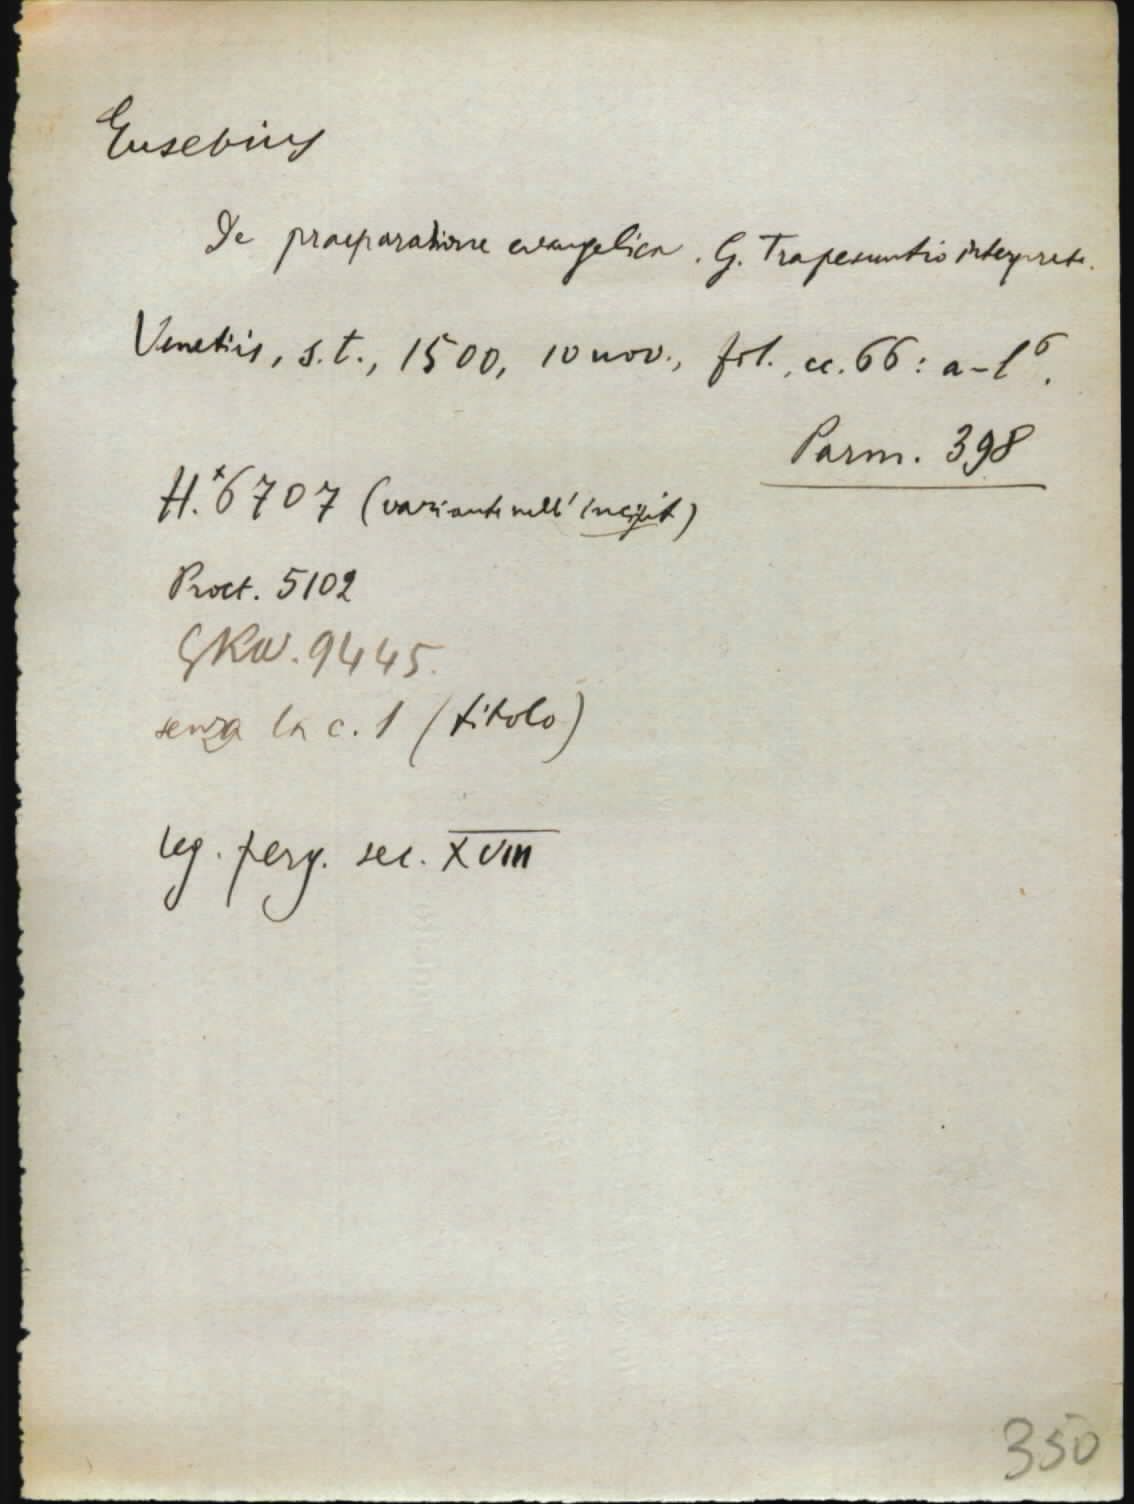 Eusebius
De praeparatione evangelica. G. Trapesuntio interprete.
Venetiis, s.t., 1500, 10 nov., fol., cc. 66: a-l⁶.
Parm. 398
H.*6707 (variante nell' incipit)
Proct. 5102
GKW. 9445.
senza la c. 1 (titolo)
leg. perg. sec. XVIII
350